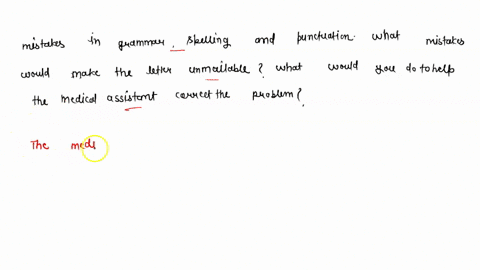 mistakes in grammar, spelling and punctuation. what mistakes
would make the letter unmailable? what would you do to help
the medical assistant correct the problem?
The meds